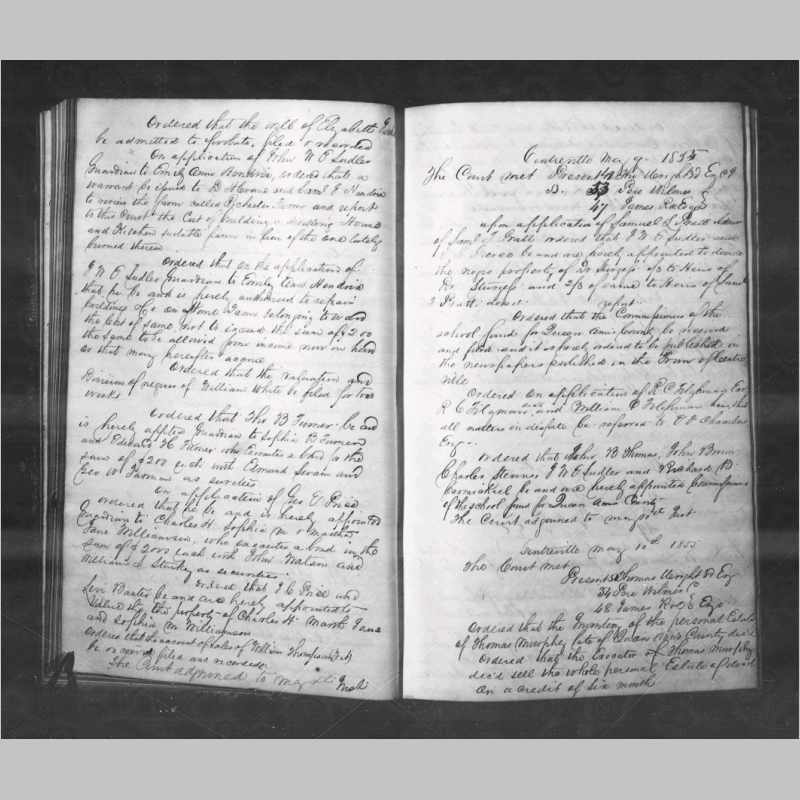 Ordered that the will of Elizabeth
be admitted to probate, filed & recorded
On application of John W E Sudler
Guardian to Emily Ann Hendrix, ordered that a
warrant be issued to and J Hendrix
to review the farm called Farm and report
to this Court the Cost of building a dwelling House
and Kitchen suitable farm in lieu of the one lately
burned therein
Ordered that on the application of
J W E Sudler Guardian to Emily Ann Hendrix
that he be and is hereby authorised to repair
buildings &c on Home Farm belonging to ward
the cost of same not to exceed the sum of $200
the same to be allowed from income now in hand
or that may hereafter accrue
Ordered that the valuation and
Division of negroes of William White be filed for two
weeks
Ordered that Tho B Turner be and
is hereby appted Guardian to Sophia B Turner
and Edward H Turner who Executes a bond in the
sum of $200 each with Edward and
Geo W as sureties
On application of Geo E Price
ordered that he be and is hereby appointed
Guardian to Charles H Sophia M & Martha
Jane Williamson, who executes a bond in the
sum of $2000 each with John Watson and
William as securities.
Ordered that J C Price and
Levi Baxter be and are hereby appointed to
the property of Charles H Marth Jane
and Sophia M Williamson
Ordered that the account of sales of William Thompson
be rec'd filed and recorded
The Court adjourned to may Inst
Centreville May 9. 1855
The Court met Present 149 Tho Wright 3d Esq
Do. 53 Pere Wilmer
47 James Roe Esqs
upon application of Samuel L Pratt Admr
of Saml T Pratt ordered that J W E Sudler and
be and are hereby appointed to
the negro property of Dr Sturgess 1/3 to Heirs of
Dr Sturgess and 2/3 of same to Heirs of Saml
T Pratt decd
report
Ordered that the Commissioners of the
school fund for Queen Anns County be received
and filed and it is hereby ordered to be published in
the newspapers published in the Town of Centre
ville
Ordered on application of R C Fitzhimy Esq
R C and William C
all matters in dispute be referred to E F Chambers
Esq
Ordered that John B Thomas, John Brown
Charles Stevens J W E Sudler and Richard B
Carmichael be and are hereby appointed Commissioners
of the school fund for Queen Ann County
The Court adjourned to may 10th Inst
Centreville May 10th 1855
The Court met
Present 150 Thomas Wright 3d Esq
54 Pere Wilmer
48 James Roe Esqs
Ordered that the Inventory of the personal Estate
of Thomas Murphy late of Queen Anns County decd
Ordered that the Executor of Thomas Murphy
decd sell the whole personal Estate of decd
on a credit of six month